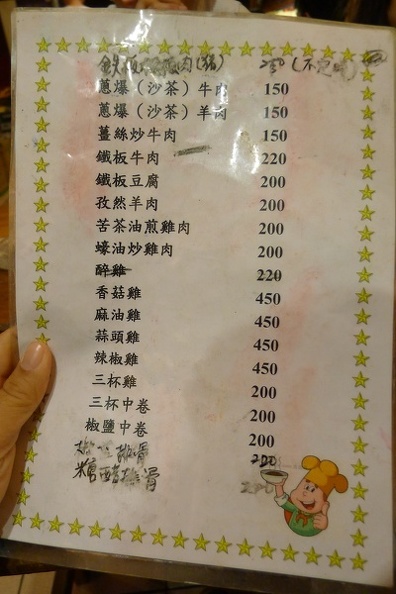 鐵板 肉(豬) 250(不定時)
蔥爆（沙茶）牛肉 150
蔥爆（沙茶）羊肉 150
薑絲炒牛肉 150
鐵板牛肉 220
鐵板豆腐 200
孜然羊肉 200
苦茶油煎雞肉 200
蠔油炒雞肉 200
醉雞 220
香菇雞 450
麻油雞 450
蒜頭雞 450
辣椒雞 450
三杯雞 200
三杯中卷 200
椒鹽中卷 200
椒鹽排骨 200
糖醋排骨